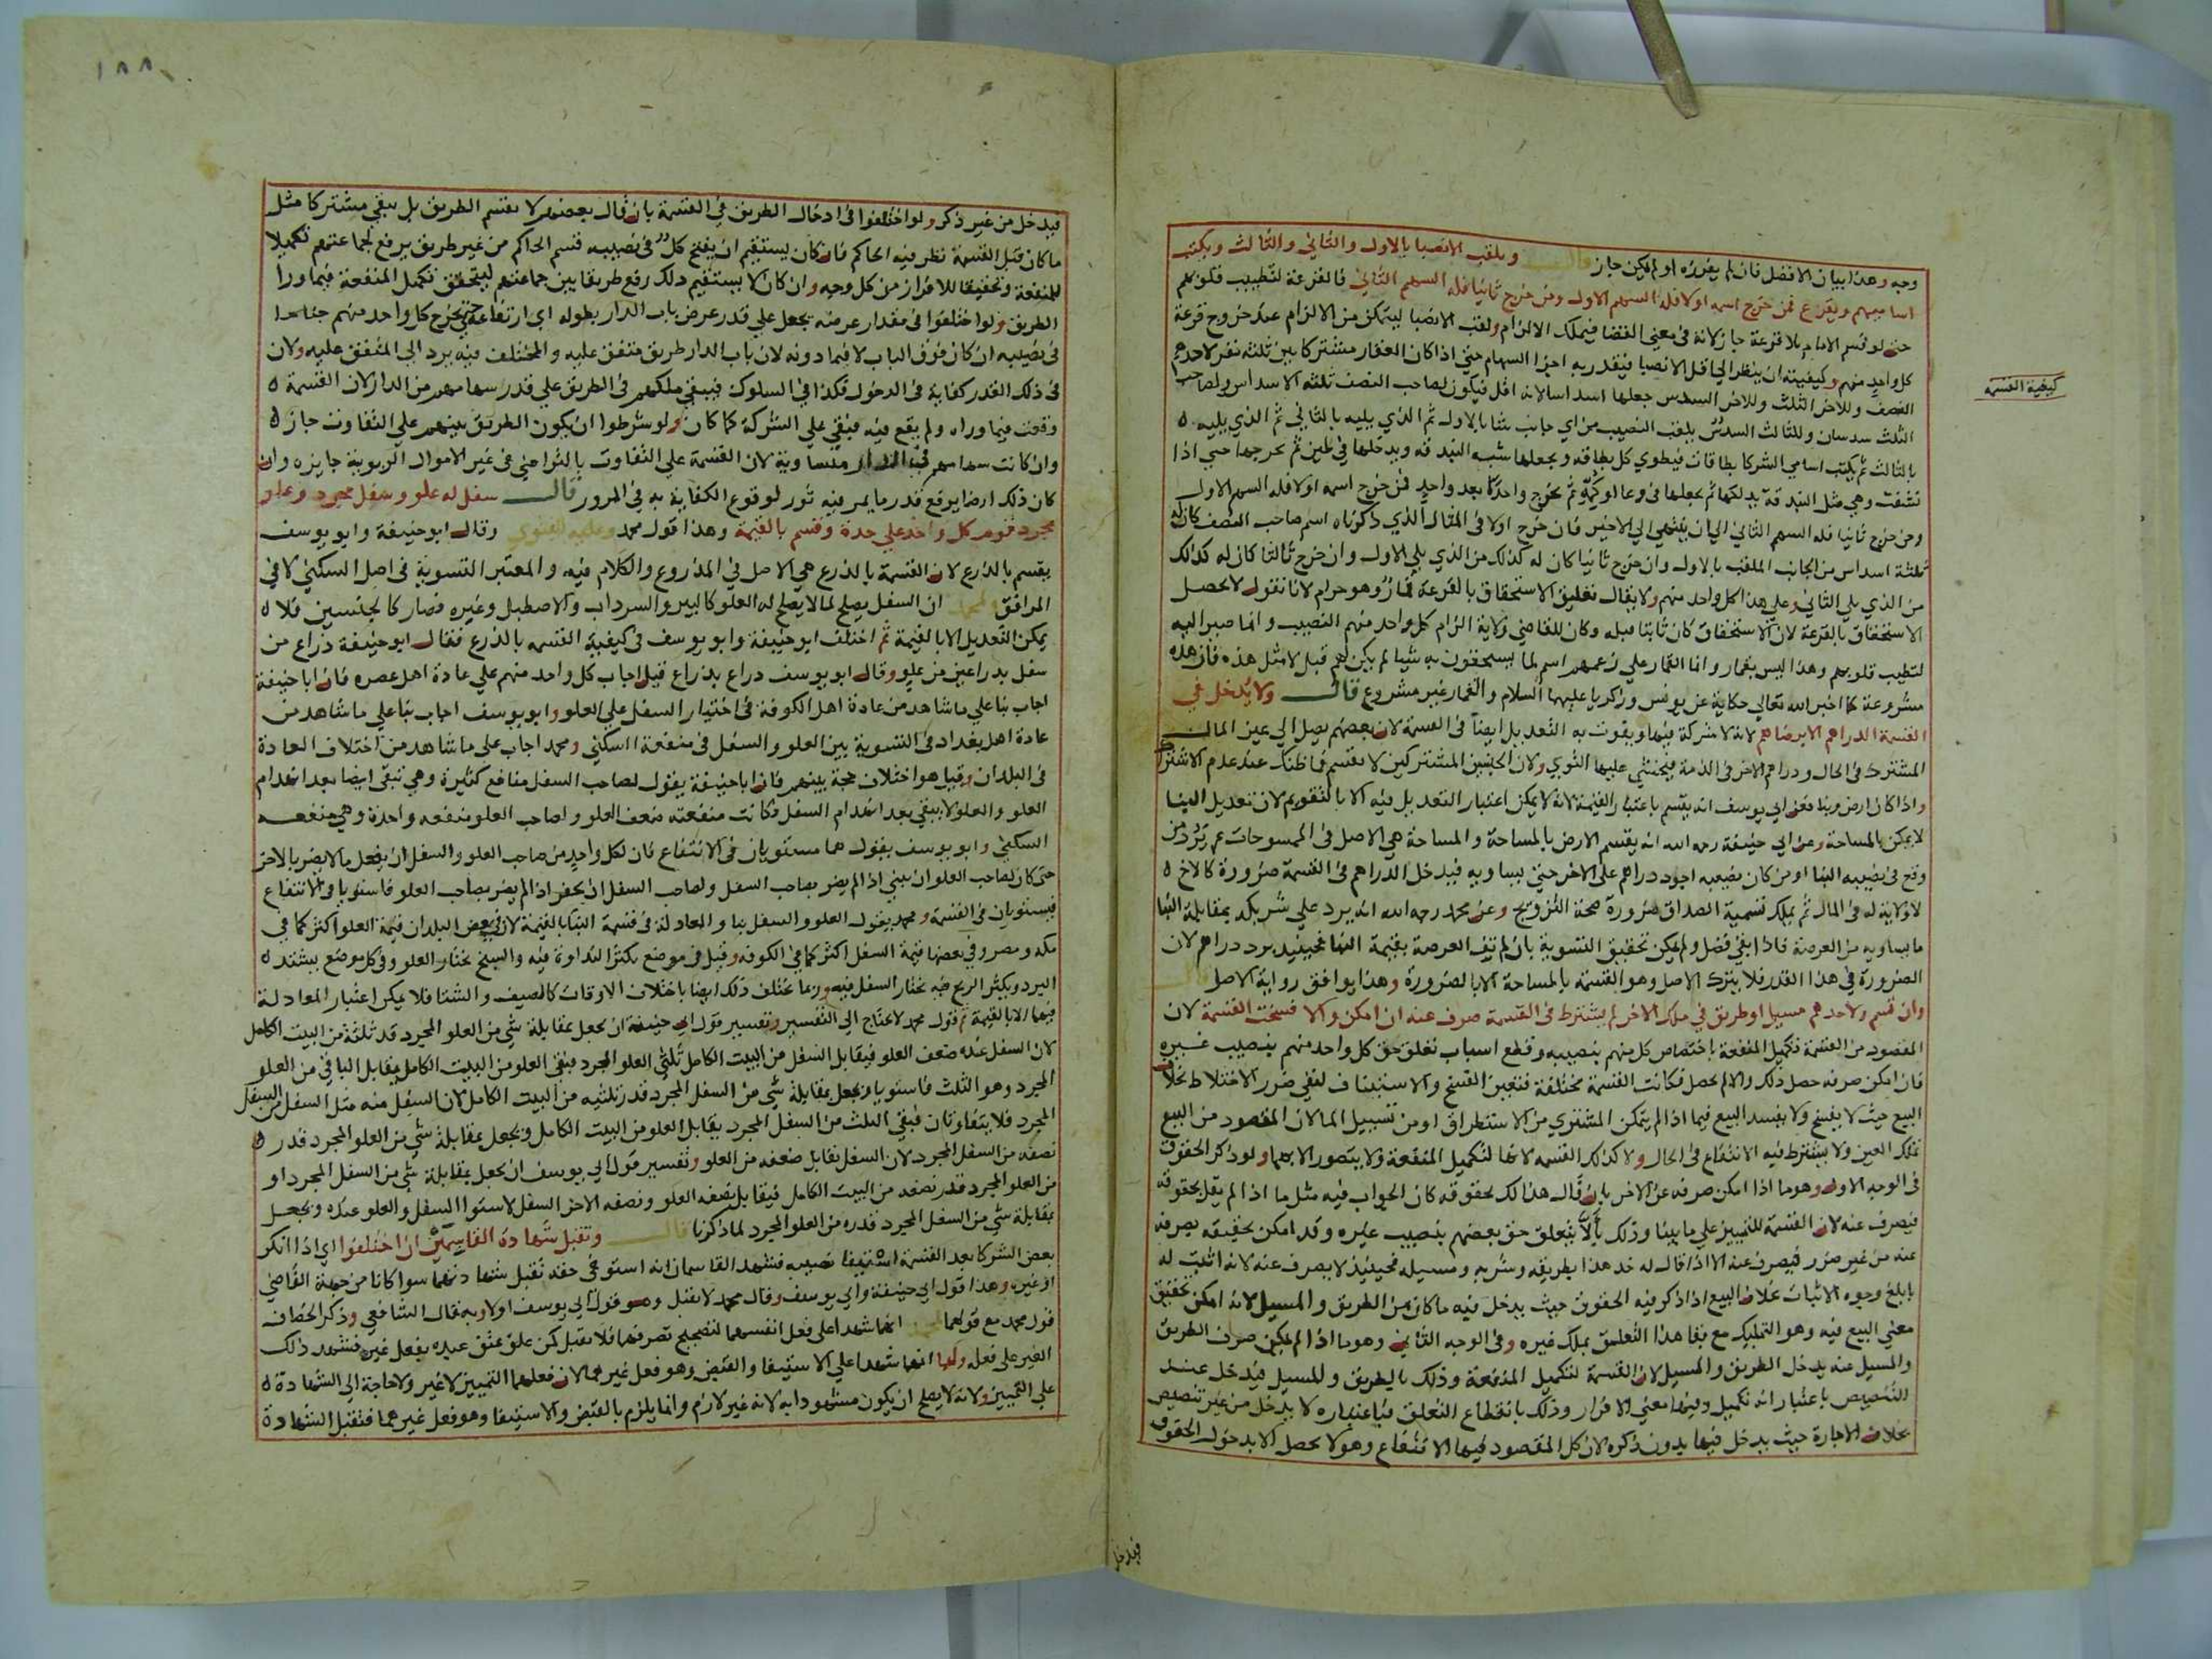 وجه وهذا بيان الافضل فان لم يفرزه او لم يمكن جاز قال ويلقب الانصبا بالاول والثاني والثالث ويكتب
اساميهم ويقرع فمن خرج اسمه اولا فله السهم الاول ومن خرج ثانيا فله السهم الثاني فالقرعة لتطييب قلوبهم
حتى لو قسم الامام بلا قرعة جاز لانه في معنى القضا فيملك الالزام ولقب الانصبا ليتمكن من الالزام عند خروج قرعة
كل واحد منهم وكيفيته ان ينظر الى اقل الانصبا فيقدر به اجزا السهام حتى اذا كان العقار مشتركا بين ثلثة نفر لاحدهم
كيفية القسمه
النصف وللاخر الثلث وللاخر السدس جعلها اسداسا لانه اقل فيكون لصاحب النصف ثلثة الاسداس ولصاحب
الثلث سدسان وللثالث السدس يلقب النصيب من اي جانب شا بالاول ثم الذي يليه بالثاني ثم الذي يليه
بالثالث ثم يكتب اسامي الشركا بطاقات فيطوي كل بطاقه ويجعلها شبه البندقه ويدخلها في طين ثم يخرجها حتى اذا
نشفت وهي مثل البندقة يدلكها ثم يجعلها في وعا او كمه ثم يخرج واحدا بعد واحد فمن خرج اسمه اولا فله السهم الاول
ومن خرج ثانيا فله السهم الثاني الى ان ينتهي الى الاخير فان خرج اولا في المثال الذي ذكرناه اسم صاحب النصف كان له
ثلثة اسداس من الجانب الملقب بالاول وان خرج ثانيا كان له كذلك من الذي يلي الاول وان خرج ثالثا كان له كذلك
من الذي يلي الثاني وعلى هذا كل واحد منهم ولا يقال تعليق الاستحقاق بالقرعة قمار وهو حرام لانا نقول لا يحصل
الاستحقاق بالقرعة لان الاستحقاق كان ثابتا قبله وكان للقاضي ولاية الزام كل واحد منهم النصيب وانما صير اليه
لتطيب قلوبهم وهذا ليس بقمار وانما القمار على زعمهم اسم لما يستحقون به شيا لم يكن لهم قبل لا مثل هذه فان هذه
مشروعة كما اخبر الله تعالى حكاية عن يونس وزكريا عليهما السلام والقمار غير مشروع قال ولا يدخل في
القسمة الدراهم الا برضاهم لانه لا شركة فيها ويفوت به التعديل ايضا في القسمة لان بعضهم يصل الى عين المال
المشترك في الحال ودراهم الاخر في الذمة فيخشى عليها التوي ولان الجنسين المشتركين لا يقسم فما ظنك عند عدم الاشتراك
واذا كان ارض وبنا فعن ابي يوسف انه يقسم باعتبار القيمة لانه لا يمكن اعتبار التعديل فيه الا بالتقويم لان تعديل البنا
لا يمكن بالمساحة وعن ابي حنيفة رحمه الله انه يقسم الارض بالمساحة والمساحة هي الاصل في الممسوحات ثم يرد من
وقع في نصيبه البنا او من كان نصيبه اجود دراهم على الاخر حتى يساويه فيدخل الدراهم في القسمة ضرورة كالاخ
لا ولاية له في المال ثم يملك تسمية الصداق ضرورة صحة التزويج وعن محمد رحمه الله انه يرد على شريكه بمقابلة البنا
ما يساويه من العرصة فاذا بقي فضل ولم يمكن تحقيق التسوية بان لم تف العرصة بقيمة البنا فحينيذ يرد دراهم لان
الضرورة في هذا القدر فلا يترك الاصل وهو القسمة بالمساحة الا بالضرورة وهذا يوافق رواية الاصل قال
وان قسم ولاحدهم مسيل او طريق في ملك الاخر لم يشترط في القسمة صرف عنه ان امكن والا فسخت القسمة لان
المقصود من القسمة تكميل المنفعة باختصاص كل منهم بنصيبه وقطع اسباب تعلق حق كل واحد منهم بنصيب غيره
فان امكن صرفه حصل ذلك والا لم يحصل فكانت القسمة مختلفة فتعين الفسخ والاستيناف لنفي ضرر الاختلاط بخلاف
البيع حيث لا يفسخ ولا يفسد البيع فيما اذا لم يتمكن المشتري من الاستطراق او من تسييل الما لان المقصود من البيع
تملك العين ولا يشترط فيه الانتفاع في الحال ولا كذلك القسمه لانها لتكميل المنفعة ولا يتصور الا بهما ولو ذكر الحقوق
في الوجه الاول وهو ما اذا امكن صرفه عن الاخر بان قال هذا لك بحقوقه كان الجواب فيه مثل ما اذا لم يقل بحقوقه
فيصرف عنه لان القسمة للتمييز على ما بينا وذلك بان لا يتعلق حق بعضهم بنصيب غيره وقد امكن تحقيقه بصرفه
عنه من غير ضرر فيصرف عنه الا اذا قال له خذ هذا بطريقه وشربه ومسيله فحينيذ لا يصرف عنه لانه اثبت له
بابلغ وجوه الاثبات بخلاف البيع اذا ذكر فيه الحقوق حيث يدخل فيه ما كان من الطريق والمسيل لانه امكن تحقيق
معنى البيع فيه وهو التمليك مع بقا هذا التعلق بملك غيره وفي الوجه الثاني وهو ما اذا لم يمكن صرف الطريق
والمسيل عنه يدخل الطريق والمسيل لان القسمة لتكميل المنفعة وذلك بالطريق والمسيل فيدخل عند
التنصيص باعتبار انه تكميل وفيها معنى الافراز وذلك بانقطاع التعلق فباعتباره لا يدخل من غير تنصيص
بخلاف الاجارة حيث يدخل فيها بدون ذكره لان كل المقصود فيها الانتفاع وهو لا يحصل الا بدخول الحقوق
فيدخل
١٨٨
فيدخل من غير ذكر ولو اختلفوا في ادخال الطريق في القسمة بان قال بعضهم لا يقسم الطريق بل يبقى مشتركا مثل
ما كان قبل القسمة نظر فيه الحاكم فان كان يستقيم ان يفتح كل في نصيبه قسم الحاكم من غير طريق يرفع لجماعتهم تكميلا
للمنفعة وتحقيقا للافراز من كل وجه وان كان لا يستقيم ذلك رفع طريقا بين جماعتهم ليتحقق تكميل المنفعة فيما ورا
الطريق ولو اختلفوا في مقدار عرضه يجعل على قدر عرض باب الدار بطوله اي ارتفاعه حتى يخرج كل واحد منهم جناحا
في نصيبه ان كان فوق الباب لا فيما دونه لان باب الدار طريق متفق عليه والمختلف فيه يرد الى المتفق عليه ولان
في ذلك القدر كفاية في الدخول فكذا في السلوك فيبقى ملكهم في الطريق على قدر سهامهم من الدار لان القسمة
وقعت فيما وراه ولم يقع فيه فبقي على الشركة كما كان ولو شرطوا ان يكون الطريق بينهم على التفاوت جاز
وان كانت سهامهم في الدار متساوية لان القسمة على التفاوت بالتراضي في غير الاموال الربوية جايزه وان
كان ذلك ارضا يرفع قدر ما يمر فيه ثور لوقوع الكفاية به في المرور قال سفل له علو وسفل مجرد وعلو
مجرد قوم كل واحد على حدة وقسم بالقيمة وهذا قول محمد وعليه الفتوى وقال ابو حنيفة وابو يوسف
يقسم بالذرع لان القسمة بالذرع هي الاصل في المذروع والكلام فيه والمعتبر التسوية في اصل السكنى لا في
المرافق ولمحمد ان السفل يصلح لما لا يصلح له العلو كالبير والسرداب والاصطبل وغيره فصار كالجنسين فلا
يمكن التعديل الا بالقيمة ثم اختلف ابو حنيفة وابو يوسف في كيفية القسمه بالذرع فقال ابو حنيفة ذراع من
سفل بذراعين من علو وقال ابو يوسف ذراع بذراع قيل اجاب كل واحد منهم على عادة اهل عصره فان ابا حنيفة
اجاب بنا على ما شاهد من عادة اهل الكوفة في اختيار السفل على العلو وابو يوسف اجاب بنا على ما شاهد من
عادة اهل بغداد في التسوية بين العلو والسفل في منفعة السكنى ومحمد اجاب على ما شاهد من اختلاف العادة
في البلدان وقيل هو اختلاف حجة بينهم فان ابا حنيفة يقول لصاحب السفل منافع كثيرة وهي تبقى ايضا بعد انهدام
العلو والعلو لا يبقى بعد انهدام السفل فكانت منفعته ضعف العلو ولصاحب العلو منفعه واحدة وهي منفعه
السكنى وابو يوسف يقول هما مستويان في الانتفاع فان لكل واحد من صاحب العلو والسفل ان يفعل ما لا يضر بالاخر
حتى كان لصاحب العلو ان يبني اذا لم يضر بصاحب السفل ولصاحب السفل ان يحفر اذا لم يضر بصاحب العلو فاستويا في الانتفاع
فيستويان في القسمة ومحمد يقول العلو والسفل بنا والمعادلة في قسمة البنا بالقيمة لان في بعض البلدان قيمة العلو اكثر كما في
مكه ومصر وفي بعضها قيمة السفل اكثر كما في الكوفه وقيل في موضع يكثر النداوة فيه والسبخ يختار العلو وفي كل موضع يشتد
البرد ويكثر الريح فيه يختار السفل فيه وربما يختلف ذلك ايضا باختلاف الاوقات كالصيف والشتا فلا يمكن اعتبار المعادلة
فيها الا بالقيمة ثم قول محمد لا يحتاج الى التفسير وتفسير قول ابي حنيفة ان يجعل بمقابلة شي من العلو المجرد قدر ثلثه من البيت الكامل
لان السفل عنده ضعف العلو فيقابل السفل من البيت الكامل ثلثي العلو المجرد فبقي العلو من البيت الكامل يقابل الباقي من العلو
المجرد وهو الثلث فاستويا ويجعل بمقابلة شي من السفل المجرد قدر ثلثيه من البيت الكامل لان السفل منه مثل السفل من السفل
المجرد فلا يتفاوتان فبقي الثلث من السفل المجرد يقابل العلو من البيت الكامل ويجعل بمقابلة شي من العلو المجرد قدر
نصفه من السفل المجرد لان السفل يقابل ضعفه من العلو وتفسير قول ابي يوسف ان يجعل بمقابلة شي من السفل المجرد او
من العلو المجرد قدر نصفه من البيت الكامل فيقابل نصفه العلو ونصفه الاخر السفل لاستوا السفل والعلو عنده ويجعل
بمقابلة شي من السفل المجرد قدره من العلو المجرد لما ذكرنا قال وتقبل شهادة القاسمين ان اختلفوا اي اذا انكر
بعض الشركا بعد القسمة استيفا نصيبه فشهد القاسمان انه استوفى حقه تقبل شهادتهما سوا كانا من جهة القاضي
او غيره وهذا قول ابي حنيفة وابي يوسف وقال محمد لا يقبل وهو قول ابي يوسف اولا وبه قال الشافعي وذكر الخصاف
قول محمد مع قولهما لمحمد انهما شهدا على فعل انفسهما لتصحيح تصرفهما فلا تقبل كمن علق عتق عبده بفعل غيره فشهد ذلك
الغير على فعله ولهما انهما شهدا على الاستيفا والقبض وهو فعل غيرهما لان فعلهما التمييز لا غير ولا حاجة الى الشهادة
على التمييز ولانه لا يصلح ان يكون مشهودا به لانه غير لازم وانما يلزم بالقبض والاستيفا وهو فعل غيرهما فتقبل الشهادة